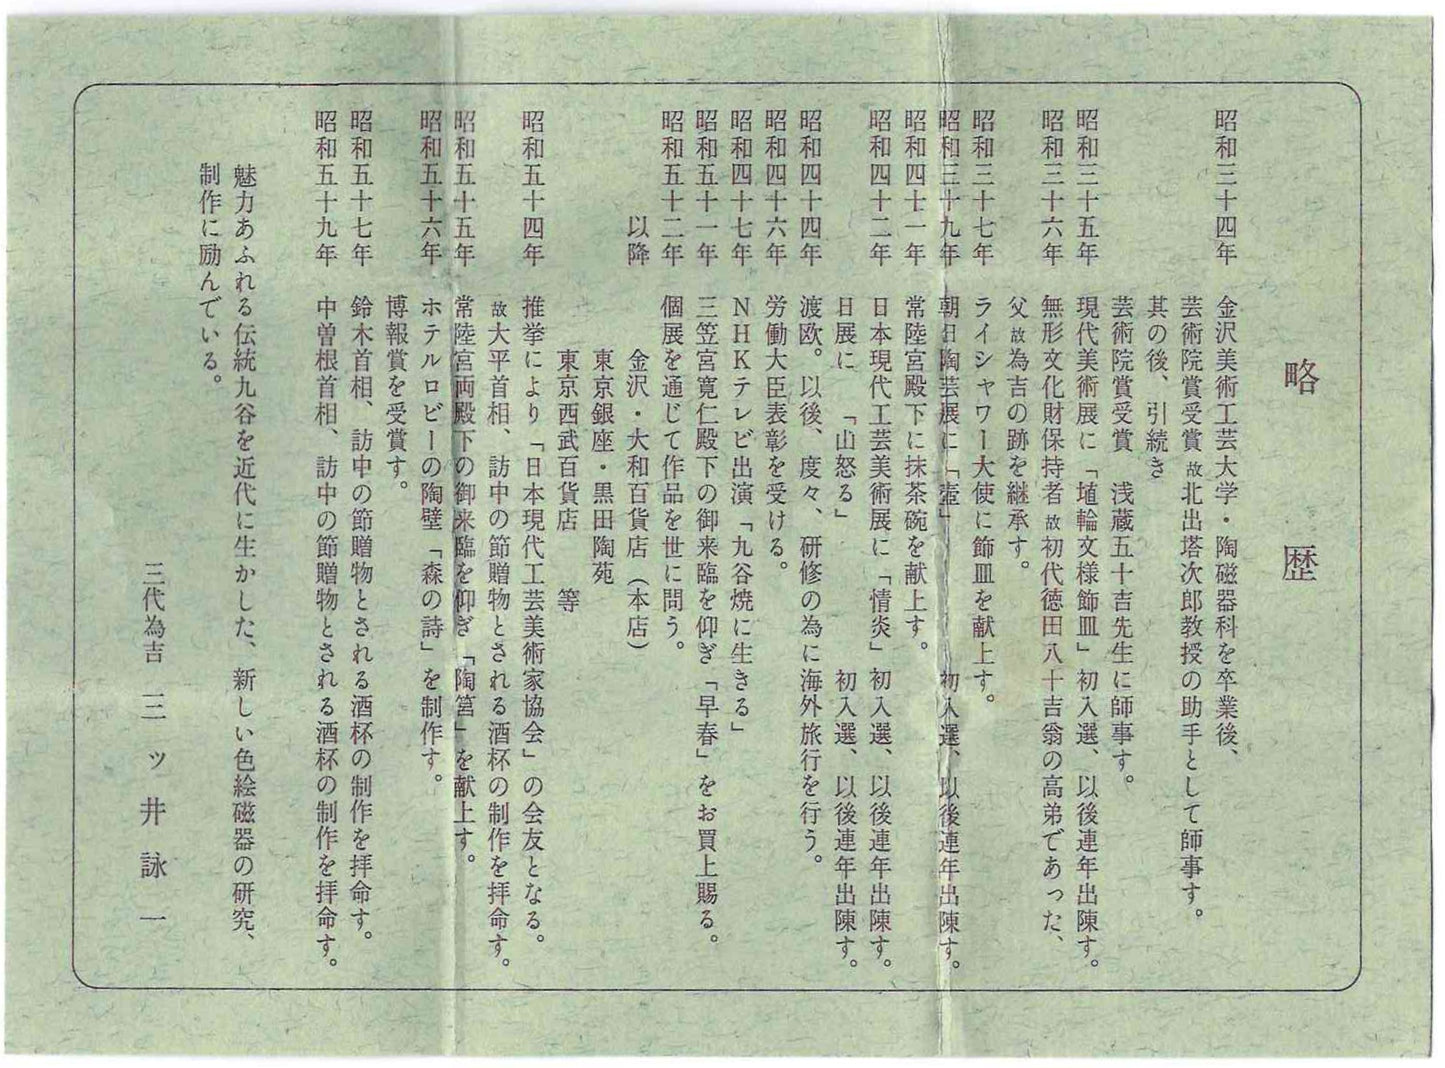 略歴
昭和三十四年 金沢美術工芸大学・陶磁器科を卒業後、
芸術院賞受賞 故北出塔次郎教授の助手として師事す。
其の後、引続き
芸術院賞受賞 浅蔵五十吉先生に師事す。
昭和三十五年 現代美術展に「埴輪文様飾皿」初入選、以後連年出陳す。
昭和三十六年 無形文化財保持者 故初代徳田八十吉翁の高弟であった、
父 故為吉の跡を継承す。
昭和三十七年 ライシャワー大使に飾皿を献上す。
昭和三十九年 朝日陶芸展に「壺」 初入選、以後連年出陳す。
昭和四十一年 常陸宮殿下に抹茶碗を献上す。
昭和四十二年 日本現代工芸美術展に「情炎」初入選、以後連年出陳す。
日展に 「山怒る」 初入選、以後連年出陳す。
昭和四十四年 渡欧。以後、度々、研修の為に海外旅行を行う。
昭和四十六年 労働大臣表彰を受ける。
昭和四十七年 NHKテレビ出演「九谷焼に生きる」
昭和五十一年 三笠宮寛仁殿下の御来臨を仰ぎ「早春」をお買上賜る。
昭和五十二年 個展を通じて作品を世に問う。
以降 金沢・大和百貨店（本店）
東京銀座・黒田陶苑
東京西武百貨店 等
昭和五十四年 推挙により「日本現代工芸美術家協会」の会友となる。
故大平首相、訪中の節贈物とされる酒杯の制作を拝命す。
昭和五十五年 常陸宮両殿下の御来臨を仰ぎ「陶筥」を献上す。
昭和五十六年 ホテルロビーの陶壁「森の詩」を制作す。
博報賞を受賞す。
昭和五十七年 鈴木首相、訪中の節贈物とされる酒杯の制作を拝命す。
昭和五十九年 中曽根首相、訪中の節贈物とされる酒杯の制作を拝命す。
魅力あふれる伝統九谷を近代に生かした、新しい色絵磁器の研究、
制作に励んでいる。
三代為吉 三ッ井詠一